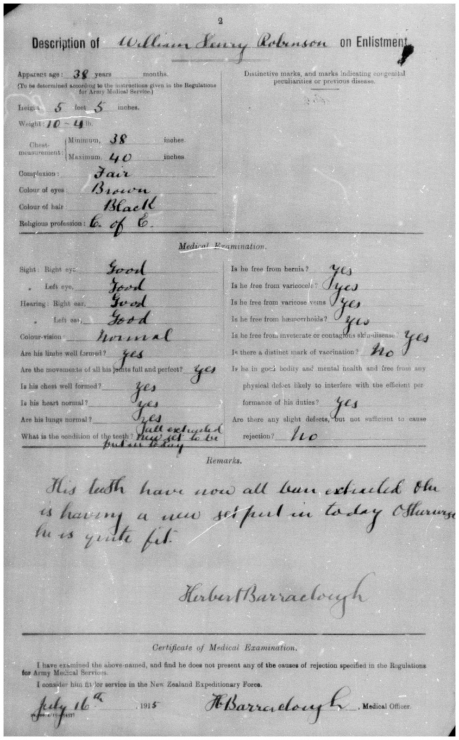 2
Description of William Henry Robinson on Enlistment.
Apparent age: 38 years months.
(To be determined according to the instructions given in the Regulations
for Army Medical Service.)
Height: 5 feet 5 inches.
Weight: 10-4 lb.
Chest-measurement: Minimum, 38 inches
Maximum, 40 inches
Complexion: Fair
Colour of eyes: Brown
Colour of hair: Black
Religious profession: C. of E.
Distinctive marks, and marks indicating congenital
peculiarities or previous disease.
Medical Examination.
Sight: Right eye, Good
„ Left eye, Good
Hearing: Right ear, Good
„ Left ear, Good
Colour-vision: Normal
Are his limbs well formed? yes
Are the movements of all his joints full and perfect? yes
Is his chest well formed? yes
Is his heart normal? yes
Are his lungs normal? yes
all extracted
What is the condition of the teeth? New set to be
put in today
Is he free from hernia? yes
Is he free from varicocele? yes
Is he free from varicose veins? yes
Is he free from hæmorrhoids? yes
Is he free from inveterate or contagious skin-disease? yes
Is there a distinct mark of vaccination? No
Is he in good bodily and mental health and free from any
physical defect likely to interfere with the efficient per-
formance of his duties? yes
Are there any slight defects, but not sufficient to cause
rejection? No
Remarks.
His teeth have now all been extracted & he
is having a new set put in today Otherwise
he is quite fit.
Herbert Barraclough
Certificate of Medical Examination.
I have examined the above-named, and find he does not present any of the causes of rejection specified in the Regulations
for Army Medical Services.
I consider him fit for service in the New Zealand Expeditionary Force.
July 16th, 1915 H Barraclough, Medical Officer.